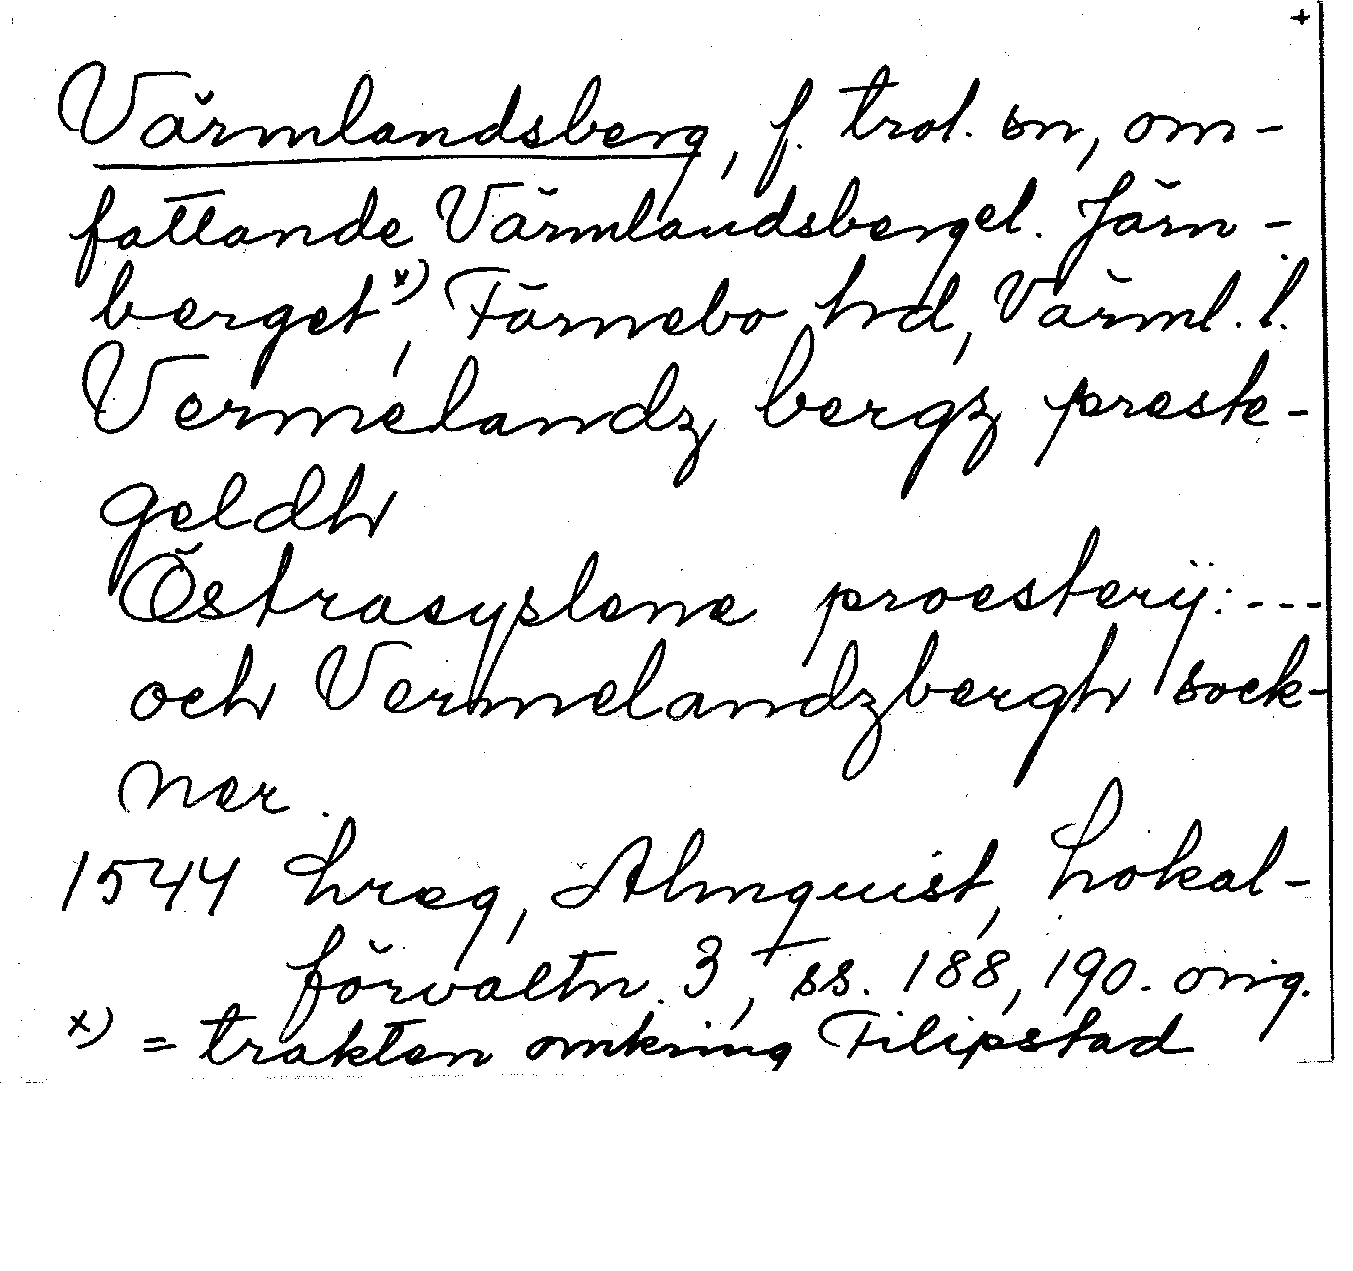 +
Värmlandsberg, f. trol. sn, om-
fattande Värmlandsberget. Järn-
berget x), Färnebo hd, Värml. l.
Vermelandz bergz preste-
geldh
Östrasyslene proestery: ---
och Vermelandzbergh sock-
ner.
1544 hreg, Almquist, Lokal-
förvaltn. 3, ss. 188, 190. orig.
x) = trakten omkring Filipstad